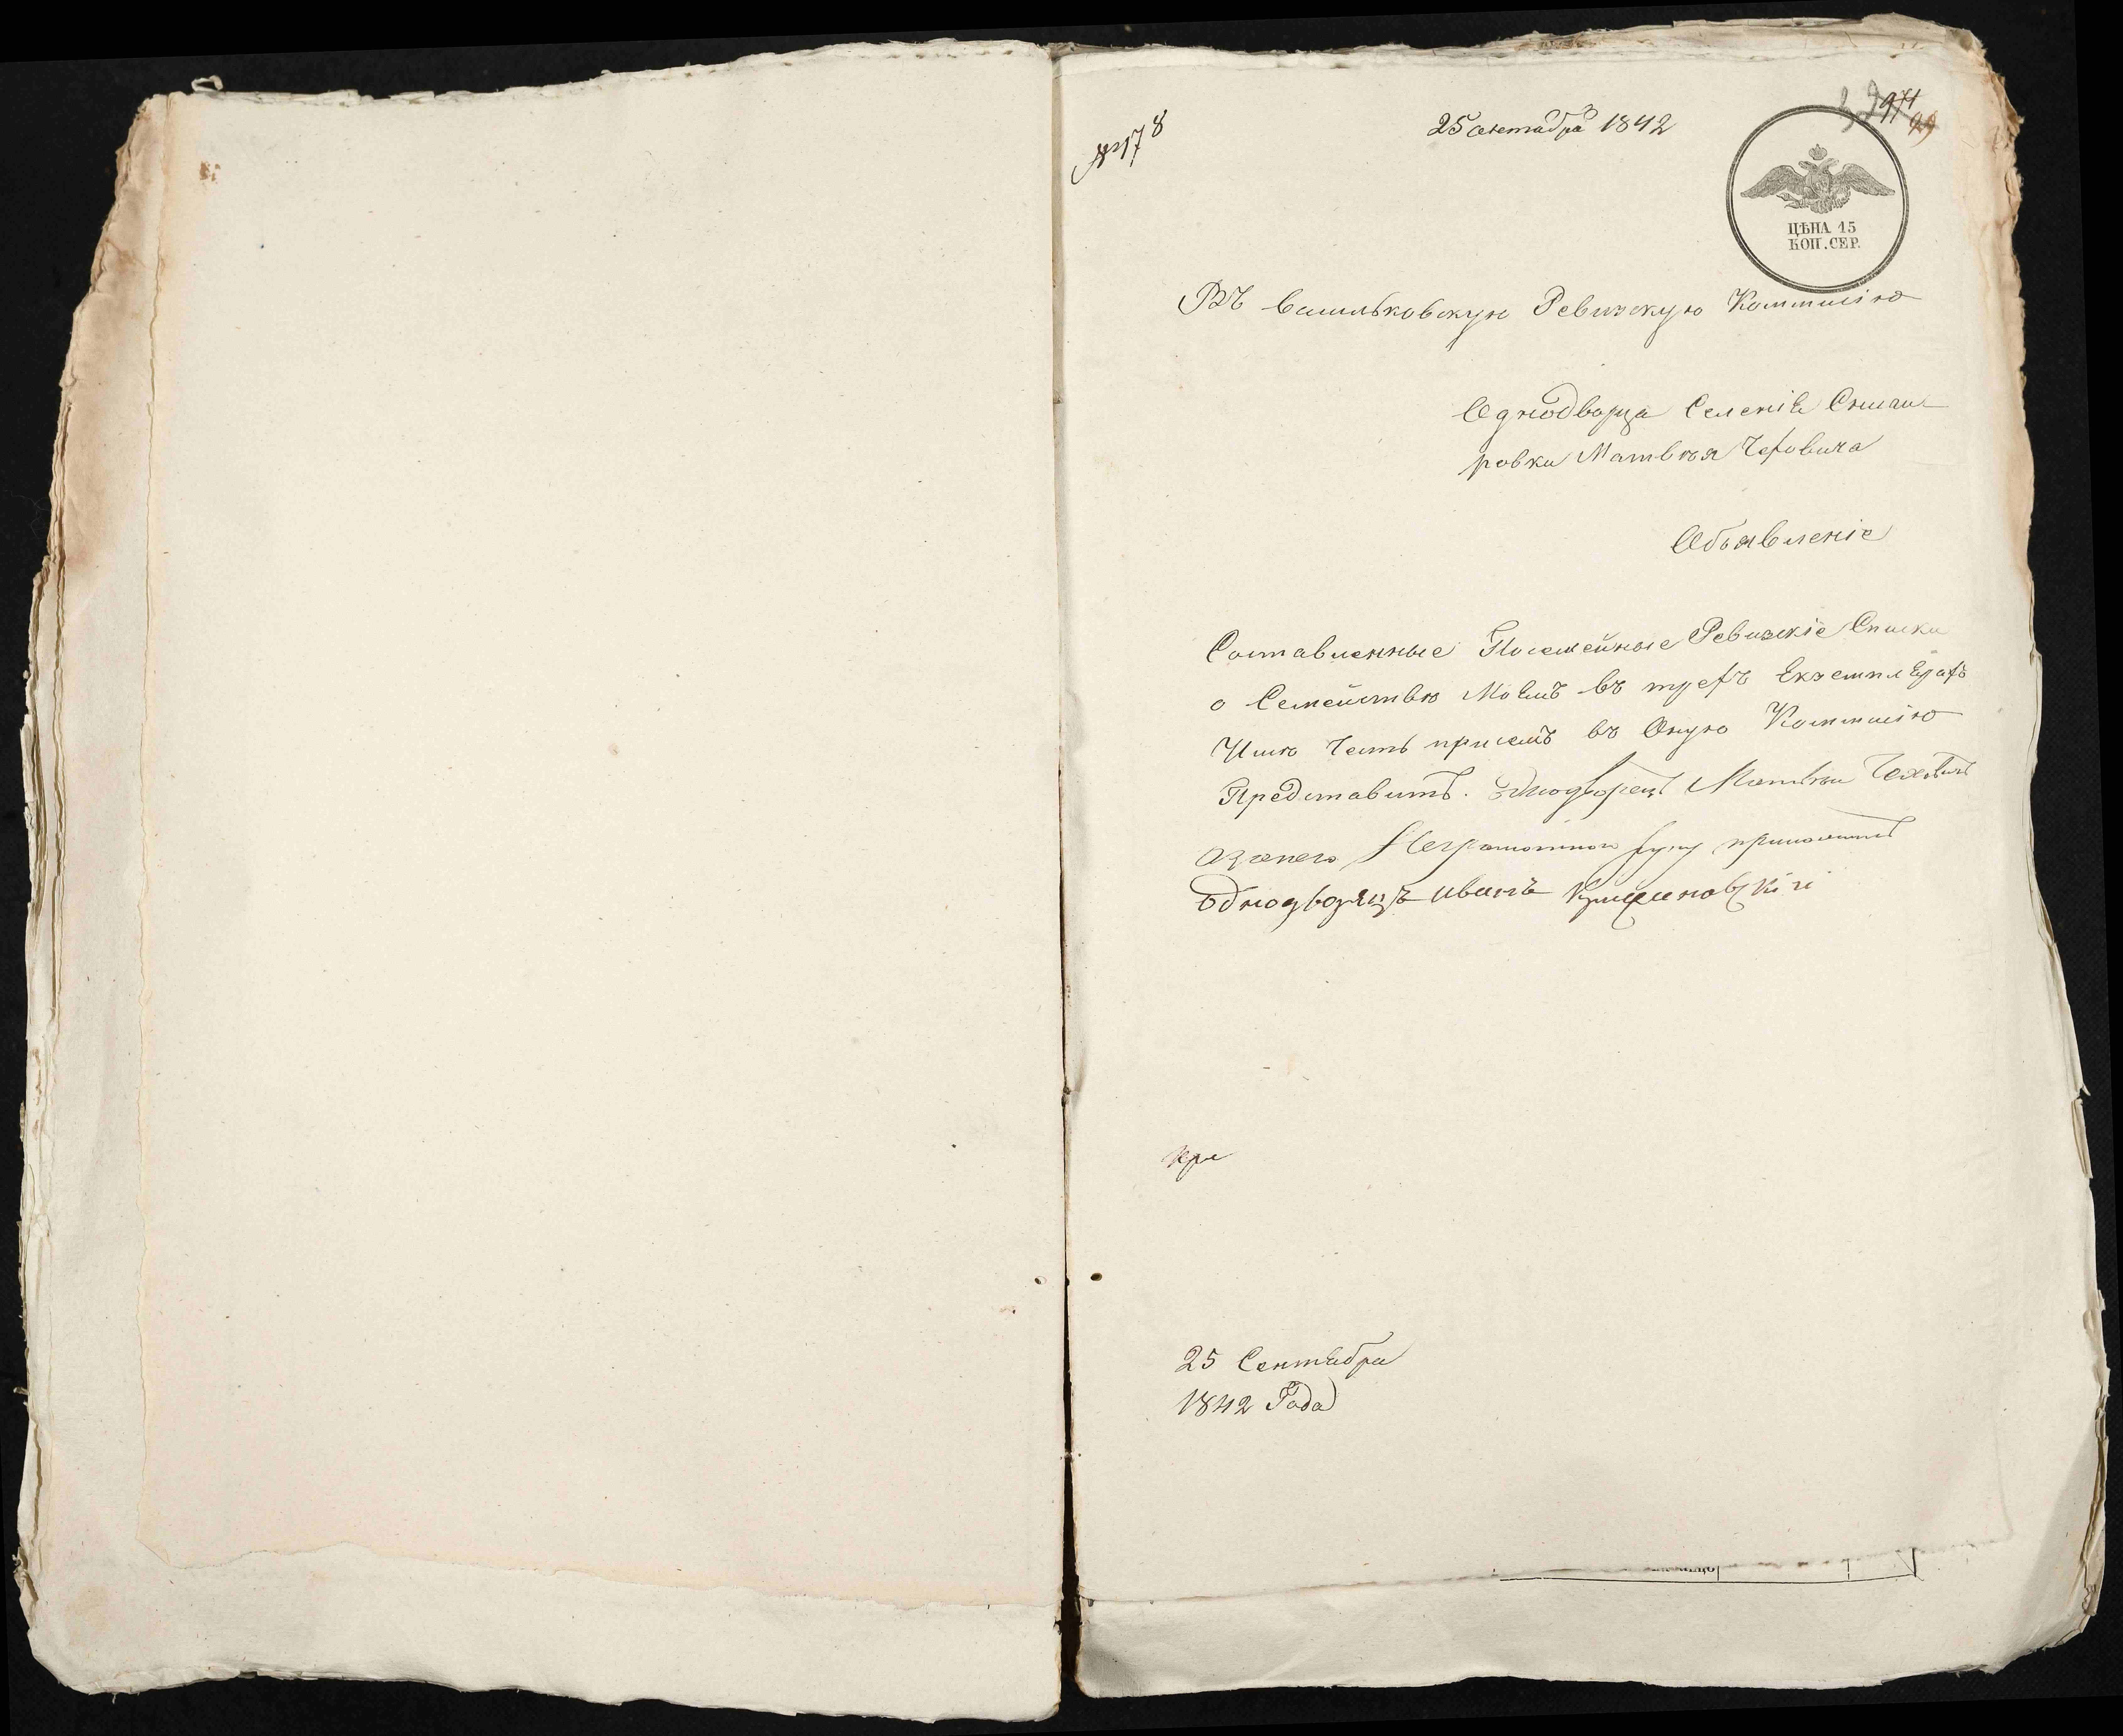 № 178
25 сентября 1842
971
99
ЦѢНА 15
КОП. СЕР.
Въ Васильковскую Ревизскую Коммисію
Однодворца Селенія
ровки Матвѣя Чеховича
Объявленіе
Составленные Посемейные Ревизскіе Списки
о Семействѣ Моемъ въ трехъ Екземплярахъ
Имѣю Честь присемъ въ Оную Коммисію
Представить. Однодворец Матвѣи Чеховичъ
азанего Неграмотного руку приложилъ
Однодворецъ иванъ
при
25 Сентября
1842 Года